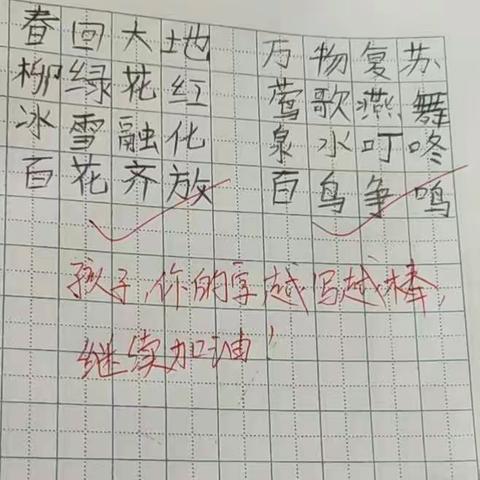 春回大地 万物复苏
柳绿花红 莺歌燕舞
冰雪融化 泉水叮咚
百花齐放 百鸟争鸣
孩子,你的字越写越棒,
继续加油!